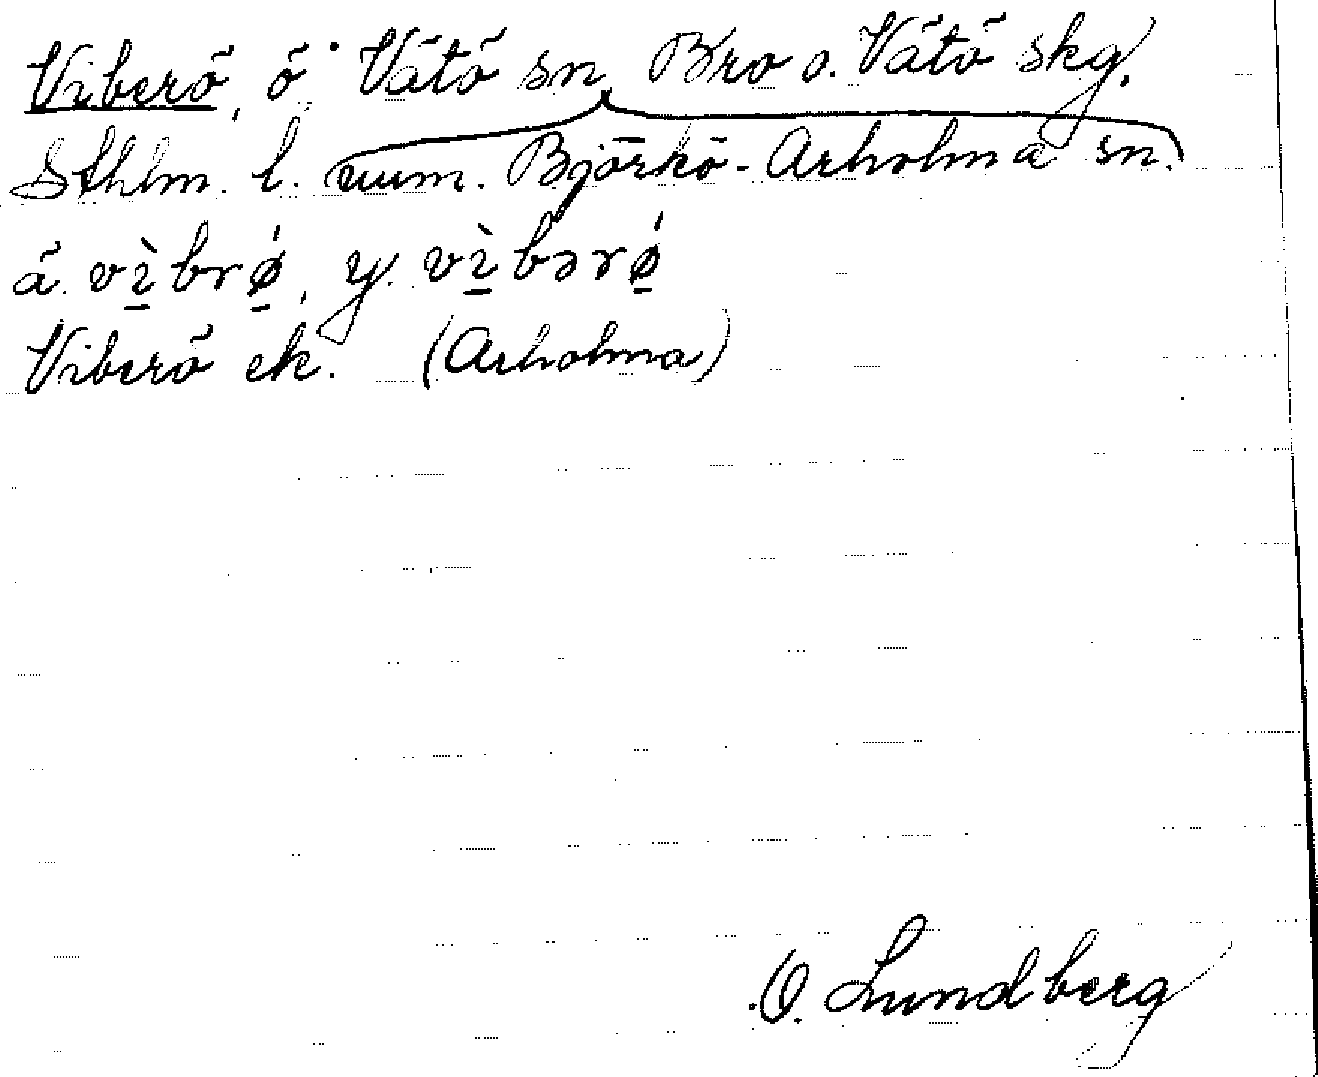 Viberö, ö, Vätö sn, Bro o. Vätö skg,
Sthlm. l. (uum. Björkö-Arholma sn.)
ä. vìbrǿ, y. vìbərǿ
Viberö ek. (Arholma)
O. Lundberg